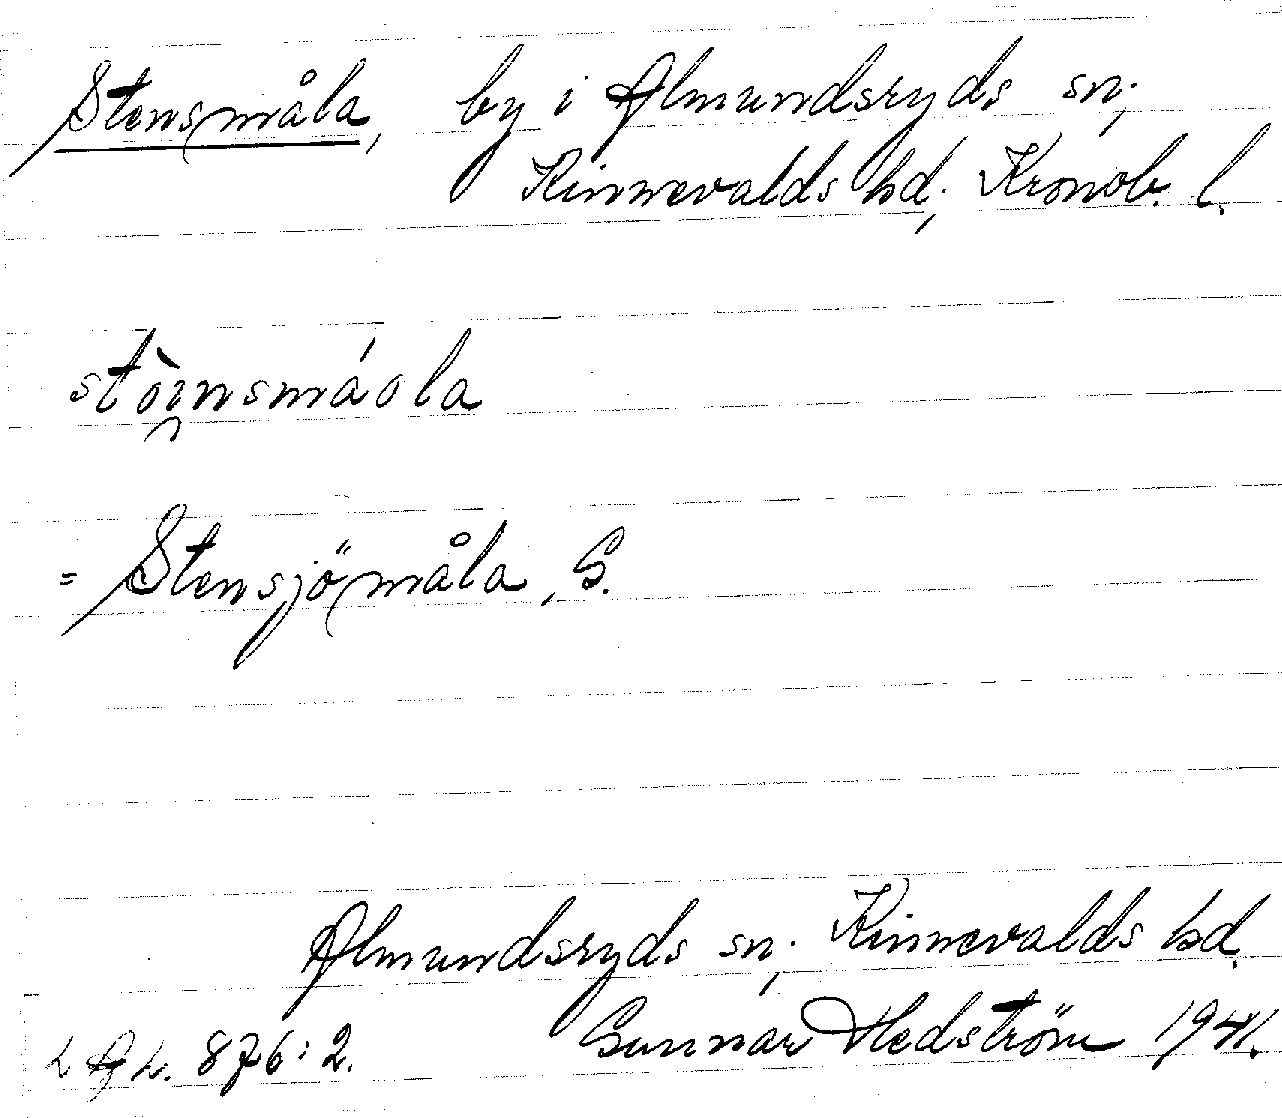 Stensmåla, by i Almundsryds sn;
Kinnevalds hd; Kronob. l.
stòi̯nsmáola
= Stensjömåla, G.
Almundsryds sn; Kinnevalds hd.
Gunnar Hedström 1941.
L A L. 876:2.